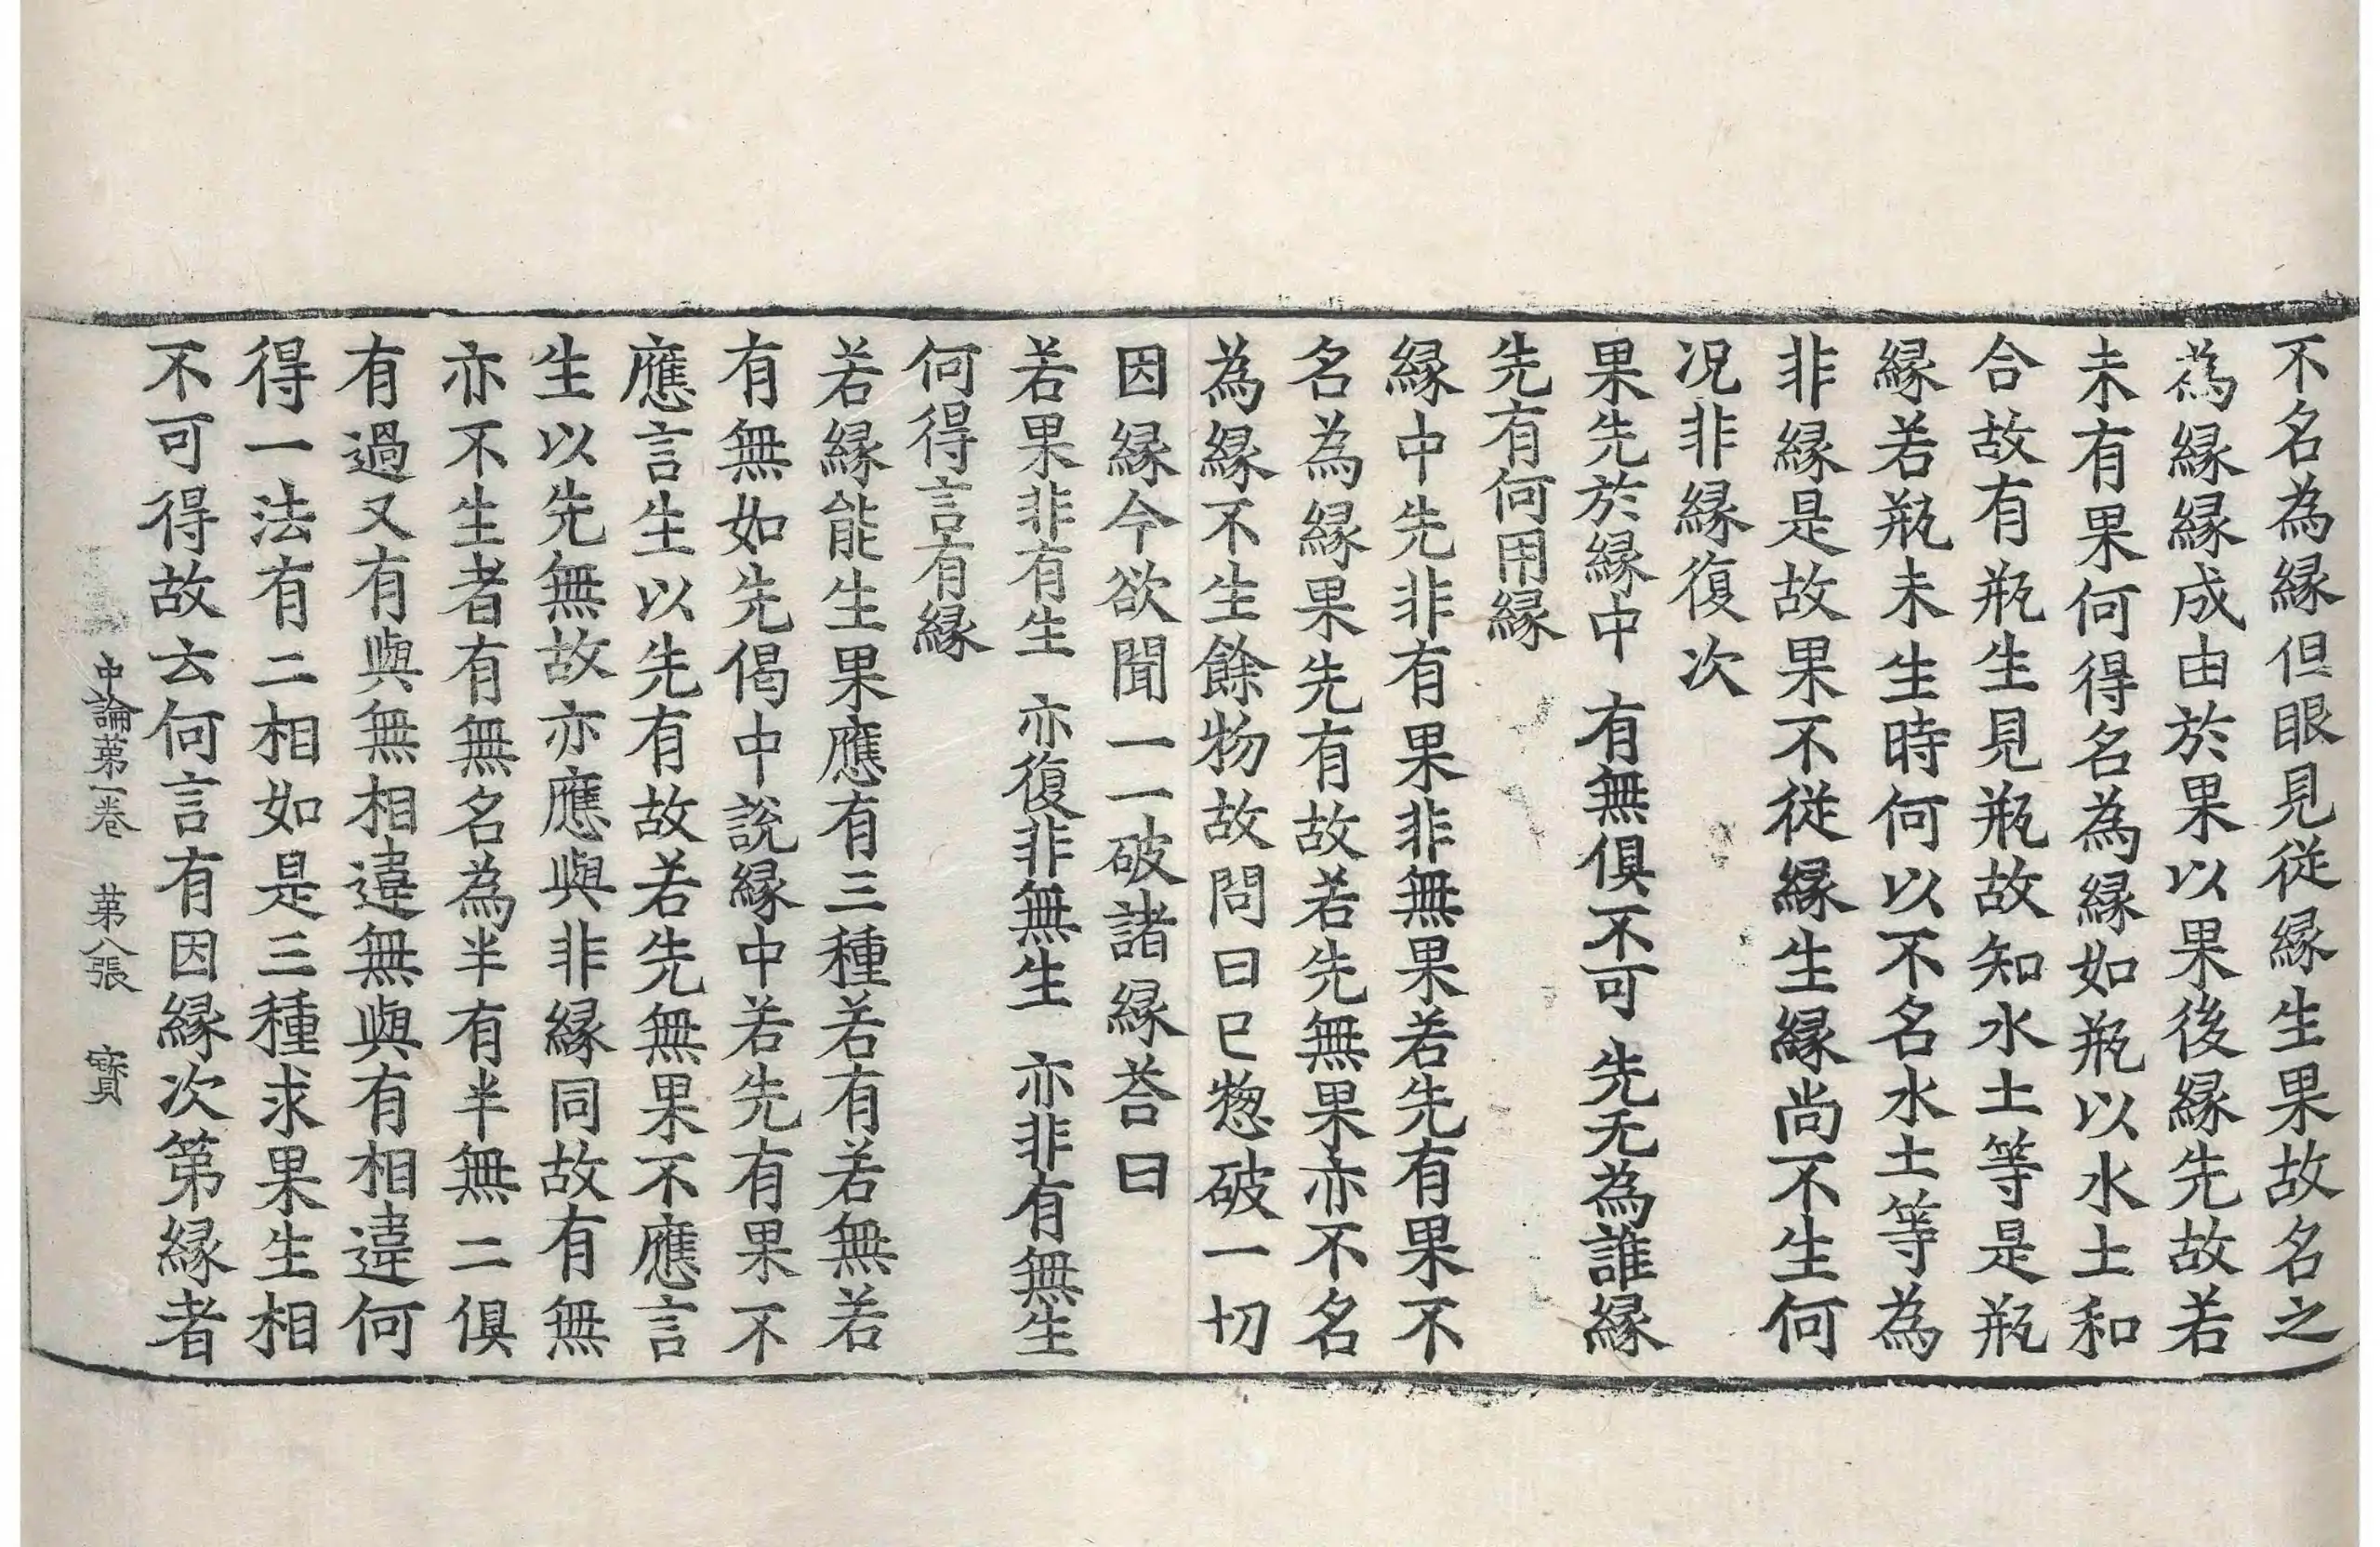 不名為縁但眼見従縁生果故名之
為縁縁成由於果以果後縁先故若
未有果何得名為縁如瓶以水土和
合故有瓶生見瓶故知水土等是瓶
縁若瓶未生時何以不名水土等為
非縁是故果不従縁生縁尚不生何
况非縁復次
果先於縁中　有無俱不可　先无為誰縁
先有何用縁
縁中先非有果非無果若先有果不
名為縁果先有故若先無果亦不名
為縁不生餘物故問曰已惣破一切
因縁今欲聞一一破諸縁荅曰
若果非有生　亦復非無生　亦非有無生
何得言有縁
若縁能生果應有三種若有若無若
有無如先偈中說縁中若先有果不
應言生以先有故若先無果不應言
生以先無故亦應與非縁同故有無
亦不生者有無名為半有半無二俱
有過又有與無相違無與有相違何
得一法有二相如是三種求果生相
不可得故去何言有因縁次第縁者
中論苐一卷　苐八張　寳